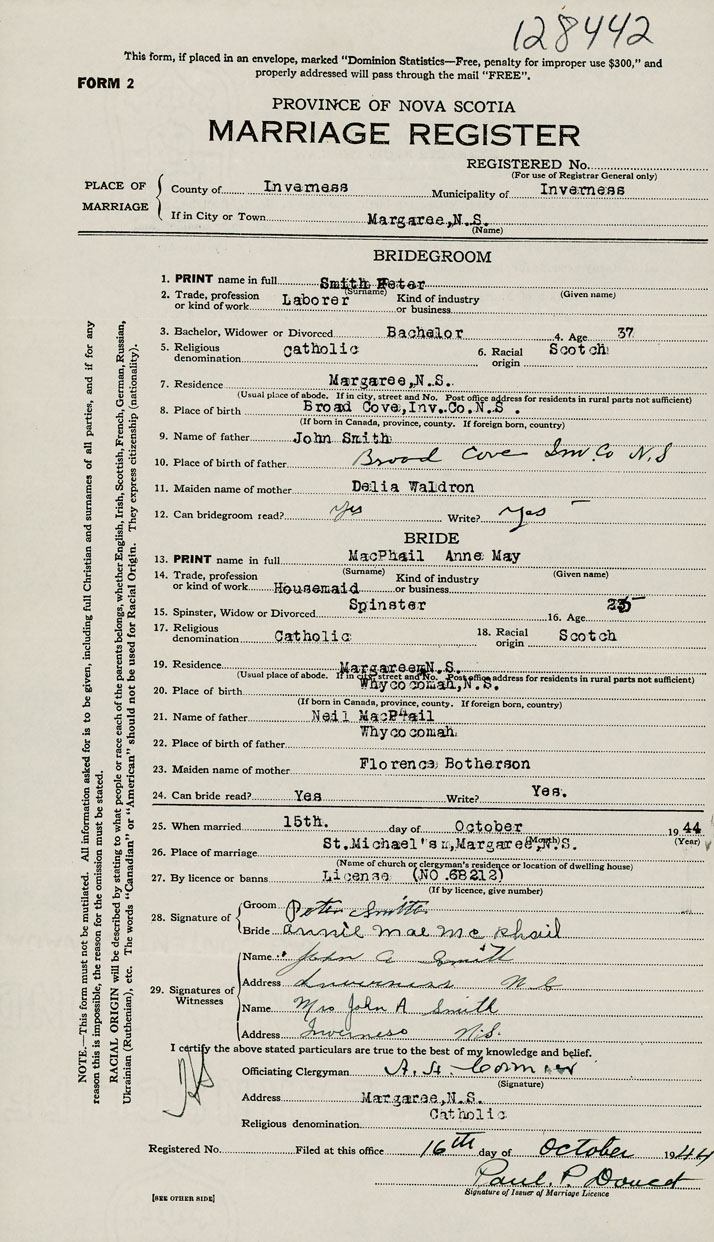 128442
This form, if placed in an envelope, marked "Dominion Statistics—Free, penalty for improper use $300," and
properly addressed will pass through the mail "FREE".
FORM 2
PROVINCE OF NOVA SCOTIA
MARRIAGE REGISTER
REGISTERED No.
(For use of Registrar General only)
PLACE OF MARRIAGE
County of Inverness Municipality of Inverness
If in City or Town Margaree,N.S.
(Name)
BRIDEGROOM
1. PRINT name in full Smith Peter
(Surname) (Given name)
2. Trade, profession or kind of work Laborer Kind of industry or business
3. Bachelor, Widower or Divorced Bachelor 4. Age 37
5. Religious denomination catholic 6. Racial origin Scotch
7. Residence Margaree,N.S.
(Usual place of abode. If in city, street and No. Post office address for residents in rural parts not sufficient)
8. Place of birth Broad Cove,Inv.Co.N.S .
(If born in Canada, province, county. If foreign born, country)
9. Name of father John Smith
10. Place of birth of father Broad Cove Inv. Co N.S
11. Maiden name of mother Delia Waldron
12. Can bridegroom read? yes Write? yes
BRIDE
13. PRINT name in full MacPhail Anne May
(Surname) (Given name)
14. Trade, profession or kind of work Housemaid Kind of industry or business
15. Spinster, Widow or Divorced Spinster 16. Age
17. Religious denomination Catholic 18. Racial origin Scotch
19. Residence Margaree,N.S.
(Usual place of abode. If in city, street and No. Post office address for residents in rural parts not sufficient)
20. Place of birth Whycocomah,N.S.
(If born in Canada, province, county. If foreign born, country)
21. Name of father Neil MacPhail
22. Place of birth of father Whycocomah
23. Maiden name of mother Florence Botherson
24. Can bride read? Yes Write? Yes.
25. When married 15th. day of October 1944
(Month) (Year)
26. Place of marriage St.Michael's ,Margaree,N.S.
(Name of church or clergyman's residence or location of dwelling house)
27. By licence or banns License (NO .68212)
(If by licence, give number)
28. Signature of Groom Peter Smith
Bride Annie Mae Mc Phail
29. Signatures of Witnesses
Name John A Smith
Address Inverness N S
Name Mrs John A Smith
Address Inverness N.S.
I certify the above stated particulars are true to the best of my knowledge and belief.
Officiating Clergyman
(Signature)
Address Margaree,N.S.
Religious denomination Catholic
Registered No. Filed at this office 16th day of October 1944
Paul P. Doucet
Signature of Issuer of Marriage Licence
[SEE OTHER SIDE]
NOTE.—This form must not be mutilated. All information asked for is to be given, including full Christian and surnames of all parties, and if for any
reason this is impossible, the reason for the omission must be stated.
RACIAL ORIGIN will be described by stating to what people or race each of the parents belongs, whether English, Irish, Scottish, French, German, Russian,
Ukrainian (Ruthenian), etc. The words "Canadian" or "American" should not be used for Racial Origin. They express citizenship (nationality).